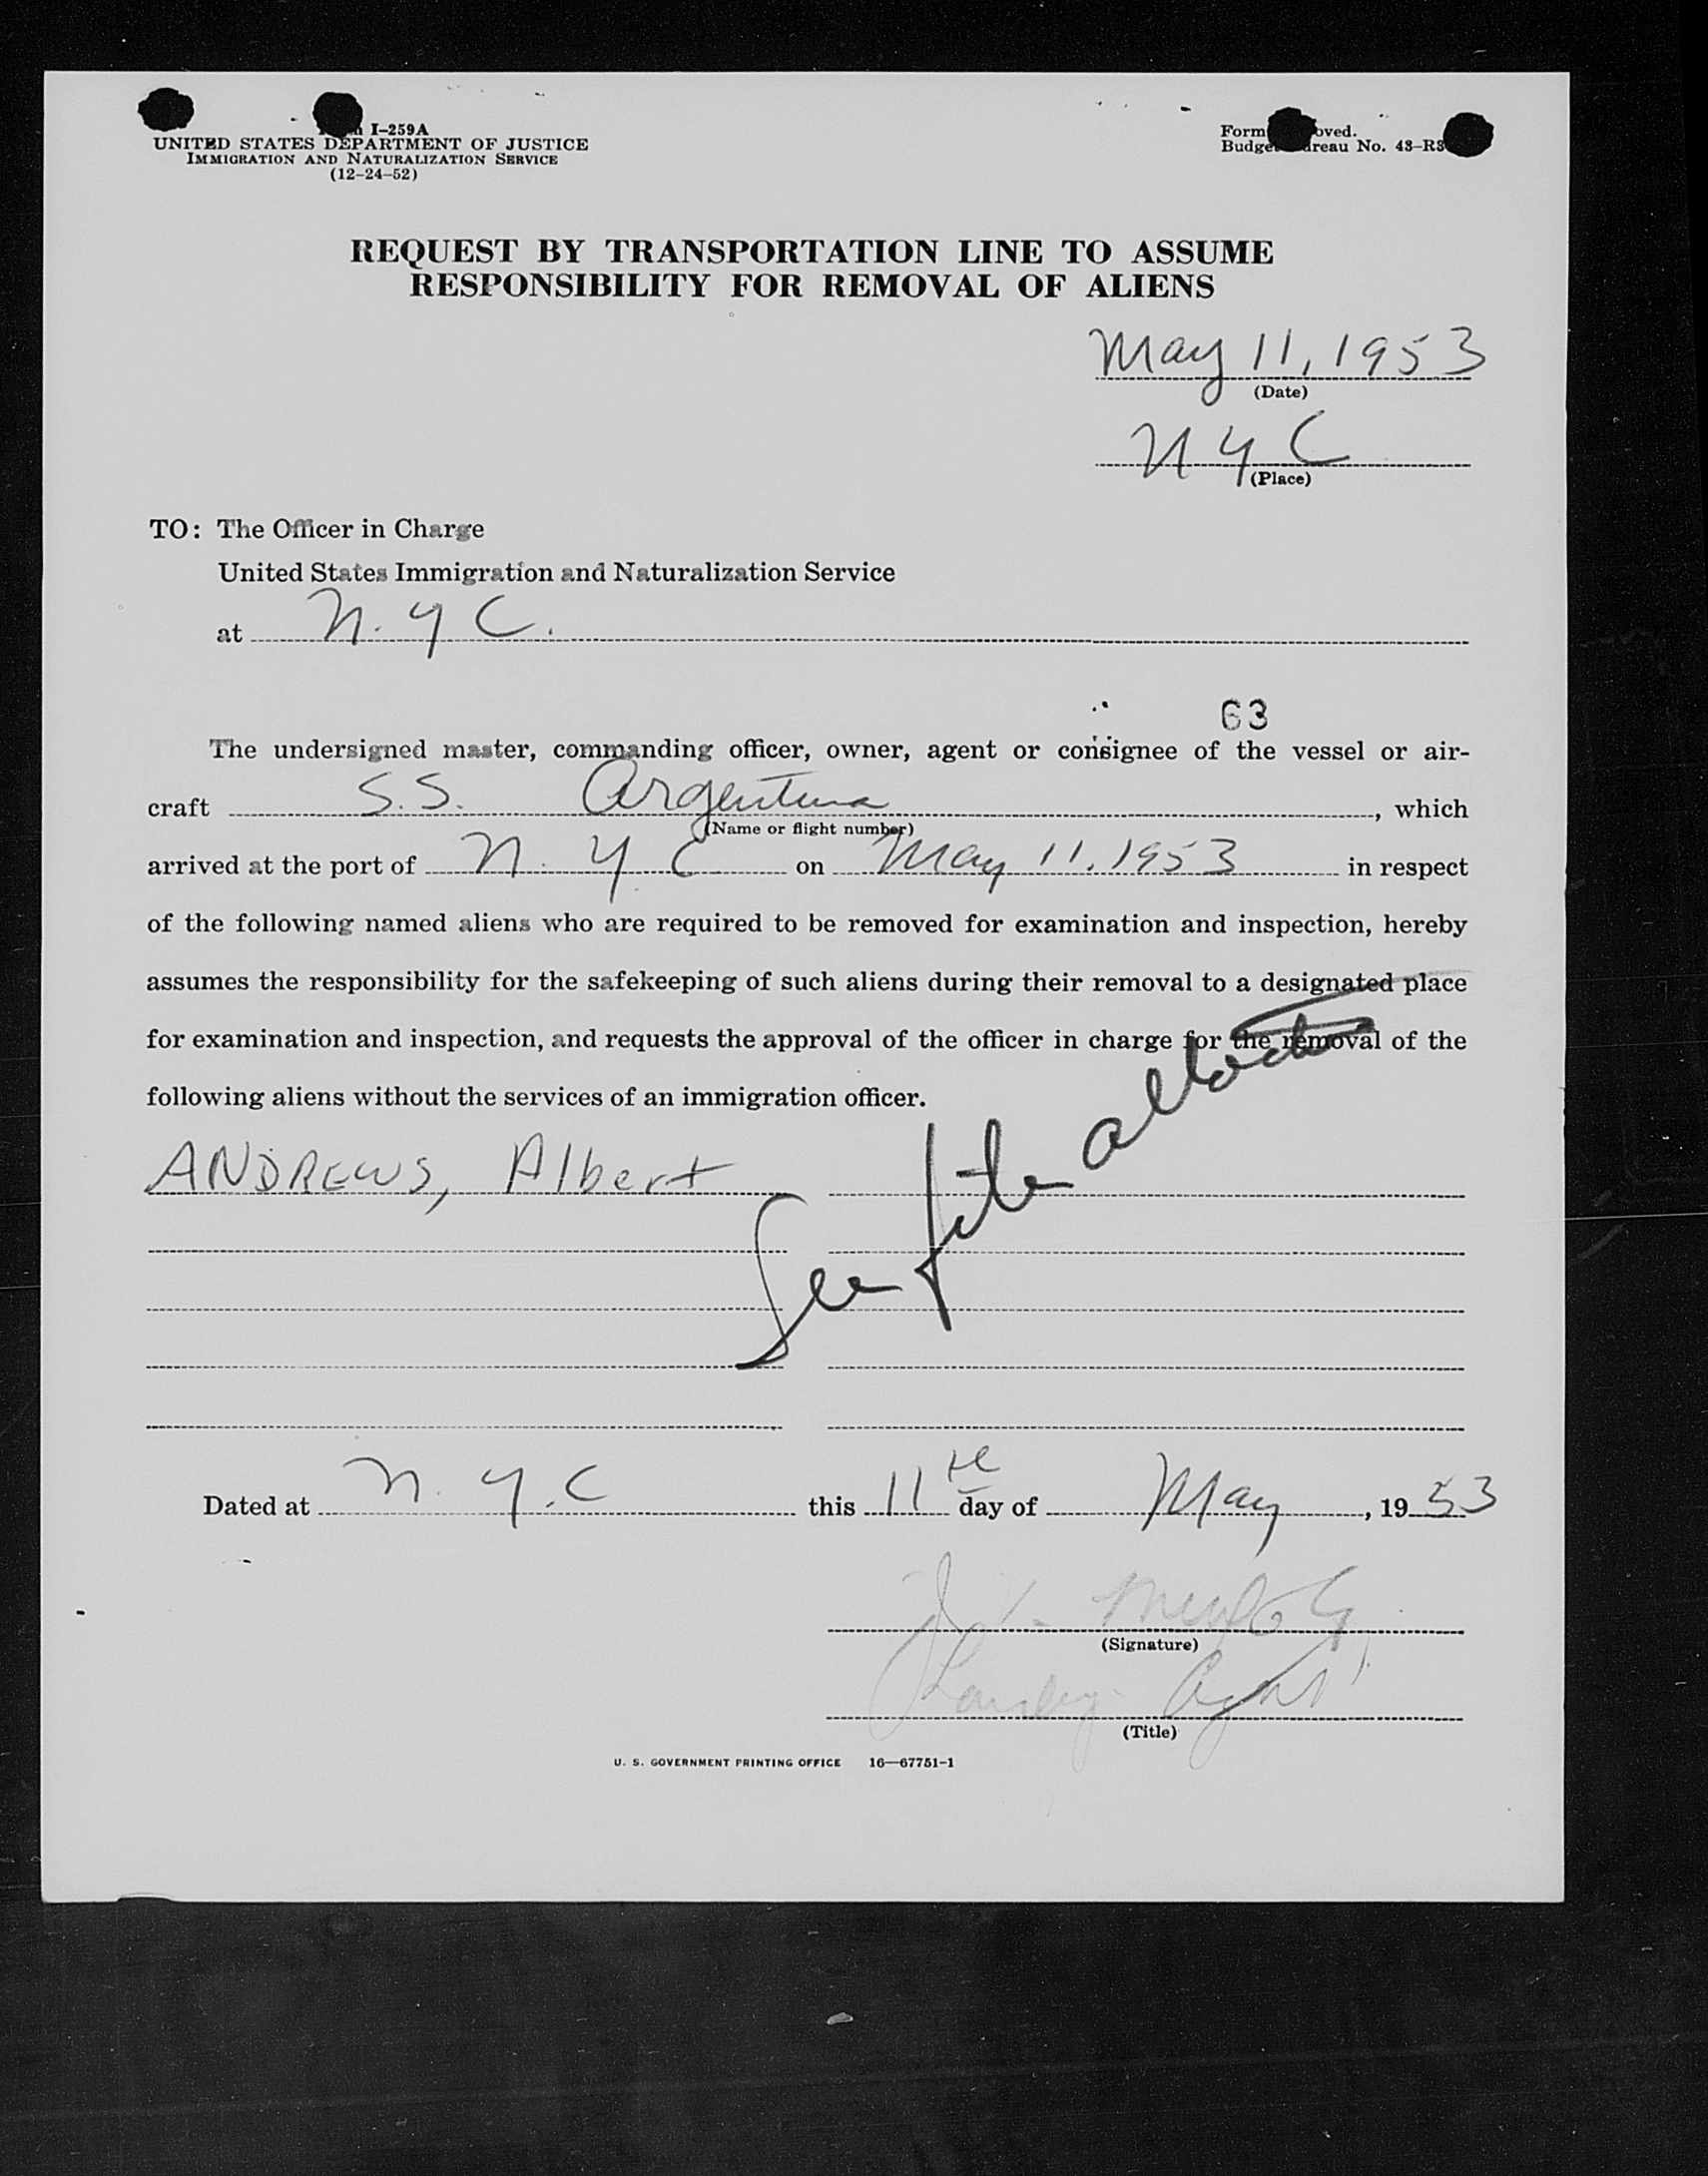 I-259A
UNITED STATES DEPARTMENT OF JUSTICE
IMMIGRATION AND NATURALIZATION SERVICE
(12-24-52)
Form
Budget Bureau No. 43-R3
REQUEST BY TRANSPORTATION LINE TO ASSUME
RESPONSIBILITY FOR REMOVAL OF ALIENS
May 11, 1953
(Date)
N Y C
(Place)
TO: The Officer in Charge
United States Immigration and Naturalization Service
at N. Y C.
63
The undersigned master, commanding officer, owner, agent or consignee of the vessel or air-
craft S.S. Argentina, which
(Name or flight number)
arrived at the port of N. Y. C on May 11, 1953 in respect
of the following named aliens who are required to be removed for examination and inspection, hereby
assumes the responsibility for the safekeeping of such aliens during their removal to a designated place
for examination and inspection, and requests the approval of the officer in charge for the removal of the
following aliens without the services of an immigration officer.
ANDREWS, Albert
See
Dated at N. Y. C this 11th day of May, 1953
(Signature)
Agent
(Title)
U. S. GOVERNMENT PRINTING OFFICE 16—67751-1